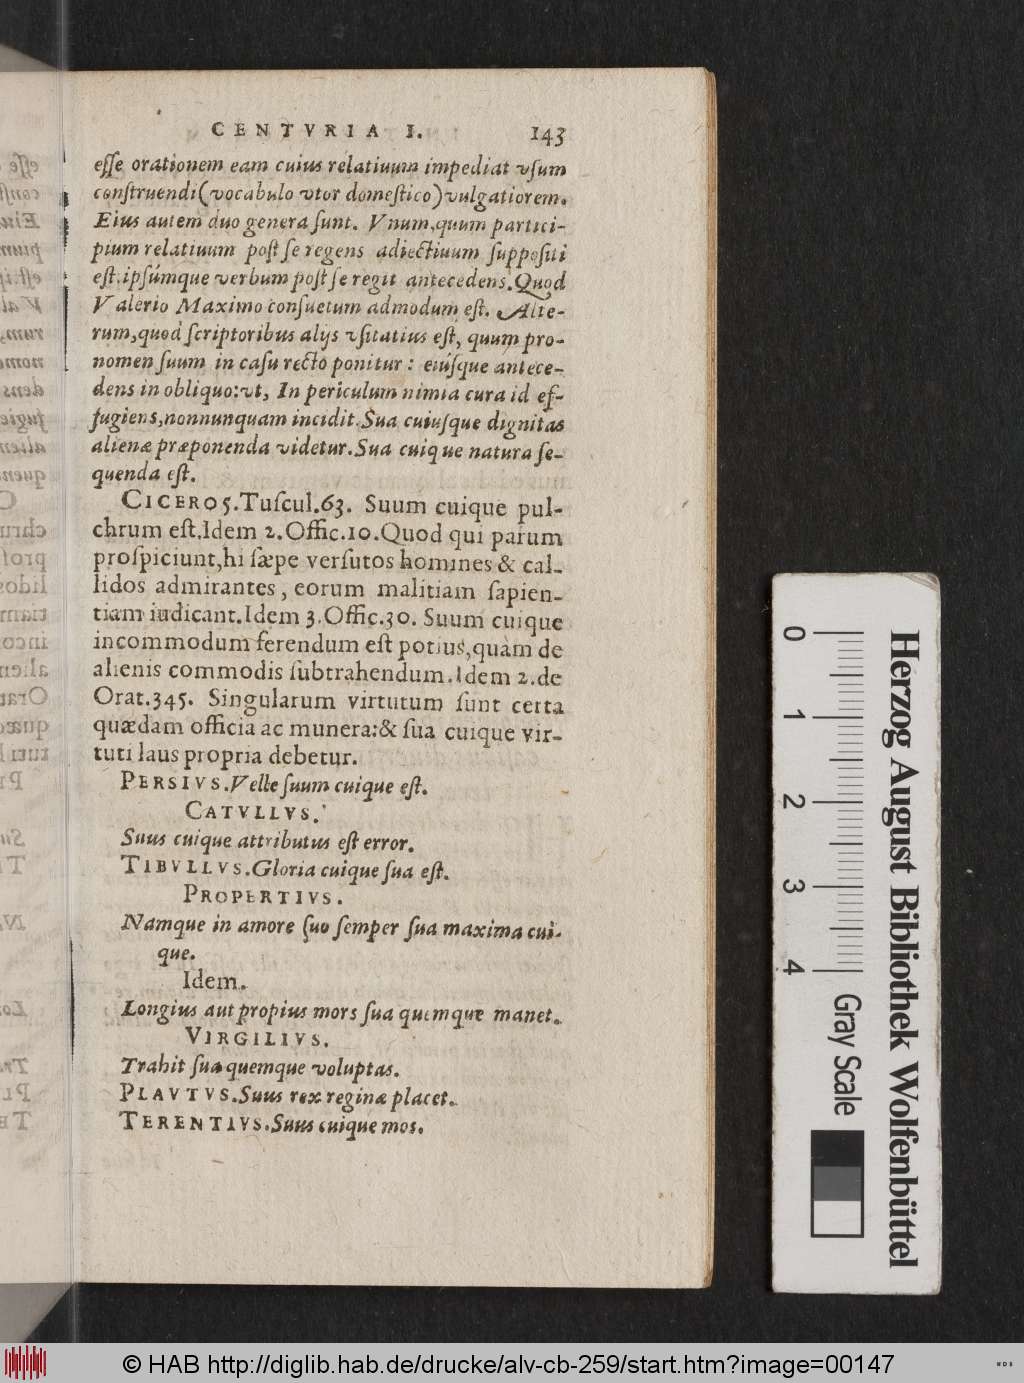 CENTVRIA I. 143
eſſe orationem eam cuius relatiuum impediat vſum
conſtruendi (vocabulo vtor domeſtico) vulgatiorem.
Eius autem duo genera ſunt. Vnum, quum partici-
pium relatiuum poſt ſe regens adiectiuum ſuppoſiti
eſt, ipſúmque verbum poſt ſe regit antecedens. Quod
Valerio Maximo conſuetum admodum eſt. Alte-
rum, quod ſcriptoribus alijs vſitatius eſt, quum pro-
nomen ſuum in caſu recto ponitur: eiúſque antece-
dens in obliquo: vt, In periculum nimia cura id ef-
fugiens, nonnunquam incidit. Sua cuiuſque dignitas
alienæ præponenda videtur. Sua cuique natura ſe-
quenda eſt.
CICERO 5. Tuſcul. 63. Suum cuique pul-
chrum eſt. Idem 2. Offic. 10. Quod qui parum
proſpiciunt, hi ſæpe verſutos homines & cal-
lidos admirantes, eorum malitiam ſapien-
tiam iudicant. Idem 3. Offic. 30. Suum cuique
incommodum ferendum eſt potius, quàm de
alienis commodis ſubtrahendum. Idem 2. de
Orat. 345. Singularum virtutum ſunt certa
quædam officia ac munera: & ſua cuique vir-
tuti laus propria debetur.
PERSIVS. Velle ſuum cuique eſt.
CATVLLVS.
Suus cuique attributus eſt error.
TIBVLLVS. Gloria cuique ſua eſt.
PROPERTIVS.
Namque in amore ſuo ſemper ſua maxima cui-
que.
Idem.
Longius aut propius mors ſua quemque manet.
VIRGILIVS.
Trahit ſua quemque voluptas.
PLAVTVS. Suus rex reginæ placet.
TERENTIVS. Suus cuique mos.
0 1 2 3 4 Gray Scale
Herzog August Bibliothek Wolfenbüttel
© HAB http://diglib.hab.de/drucke/alv-cb-259/start.htm?image=00147